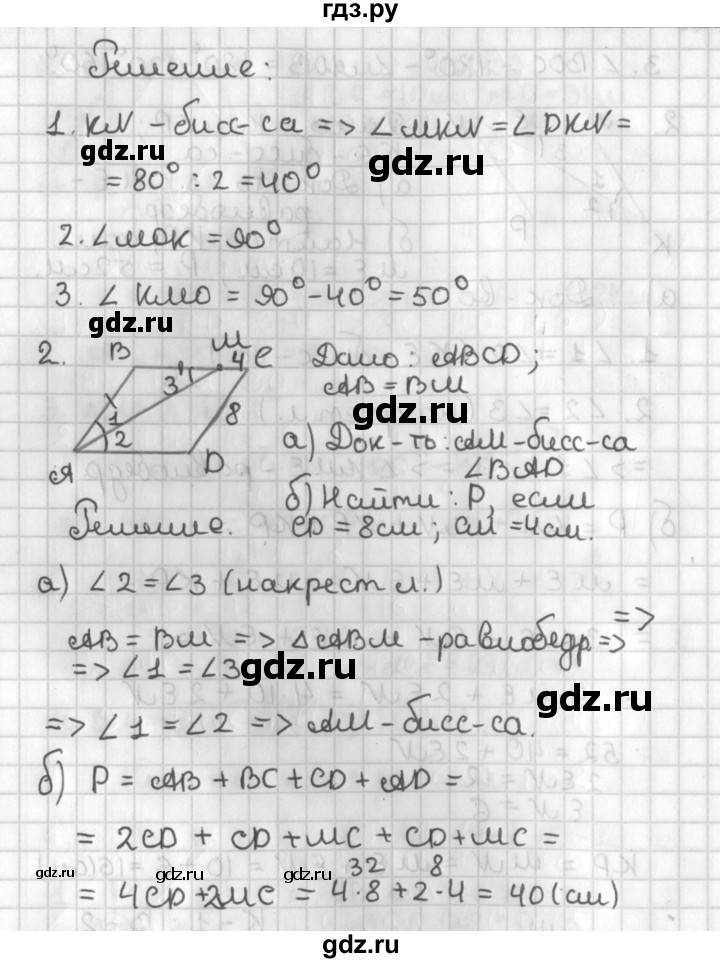 гдз.ру
Решение:
1. KN - бисс-са => ∠MKN = ∠DKN =
= 80° : 2 = 40°
gdz.ru gdz.ru
2. ∠MOK = 90°
3. ∠KMO = 90° - 40° = 50°
gdz.ru
2. B M 4 C 3 1 2 8 A D
Дано: ABCD;
AB = BM
а) Док-ть: AM - бисс-са
∠BAD
б) Найти: P, если
CD = 8см; CM = 4см.
gdz.ru gdz.ru
Решение.
а) ∠2 = ∠3 (накрест л.)
AB = BM => △ABM - равнобедр =>
=>
=> ∠1 = ∠3
gdz.ru gdz.ru
=> ∠1 = ∠2 => AM - бисс-са.
б) P = AB + BC + CD + AD =
= 2CD + CD + MC + CD + MC =
32 8
gdz.ru gdz.ru gdz.ru
= 4CD + 2MC = 4·8 + 2·4 = 40 (см)
gdz.ru